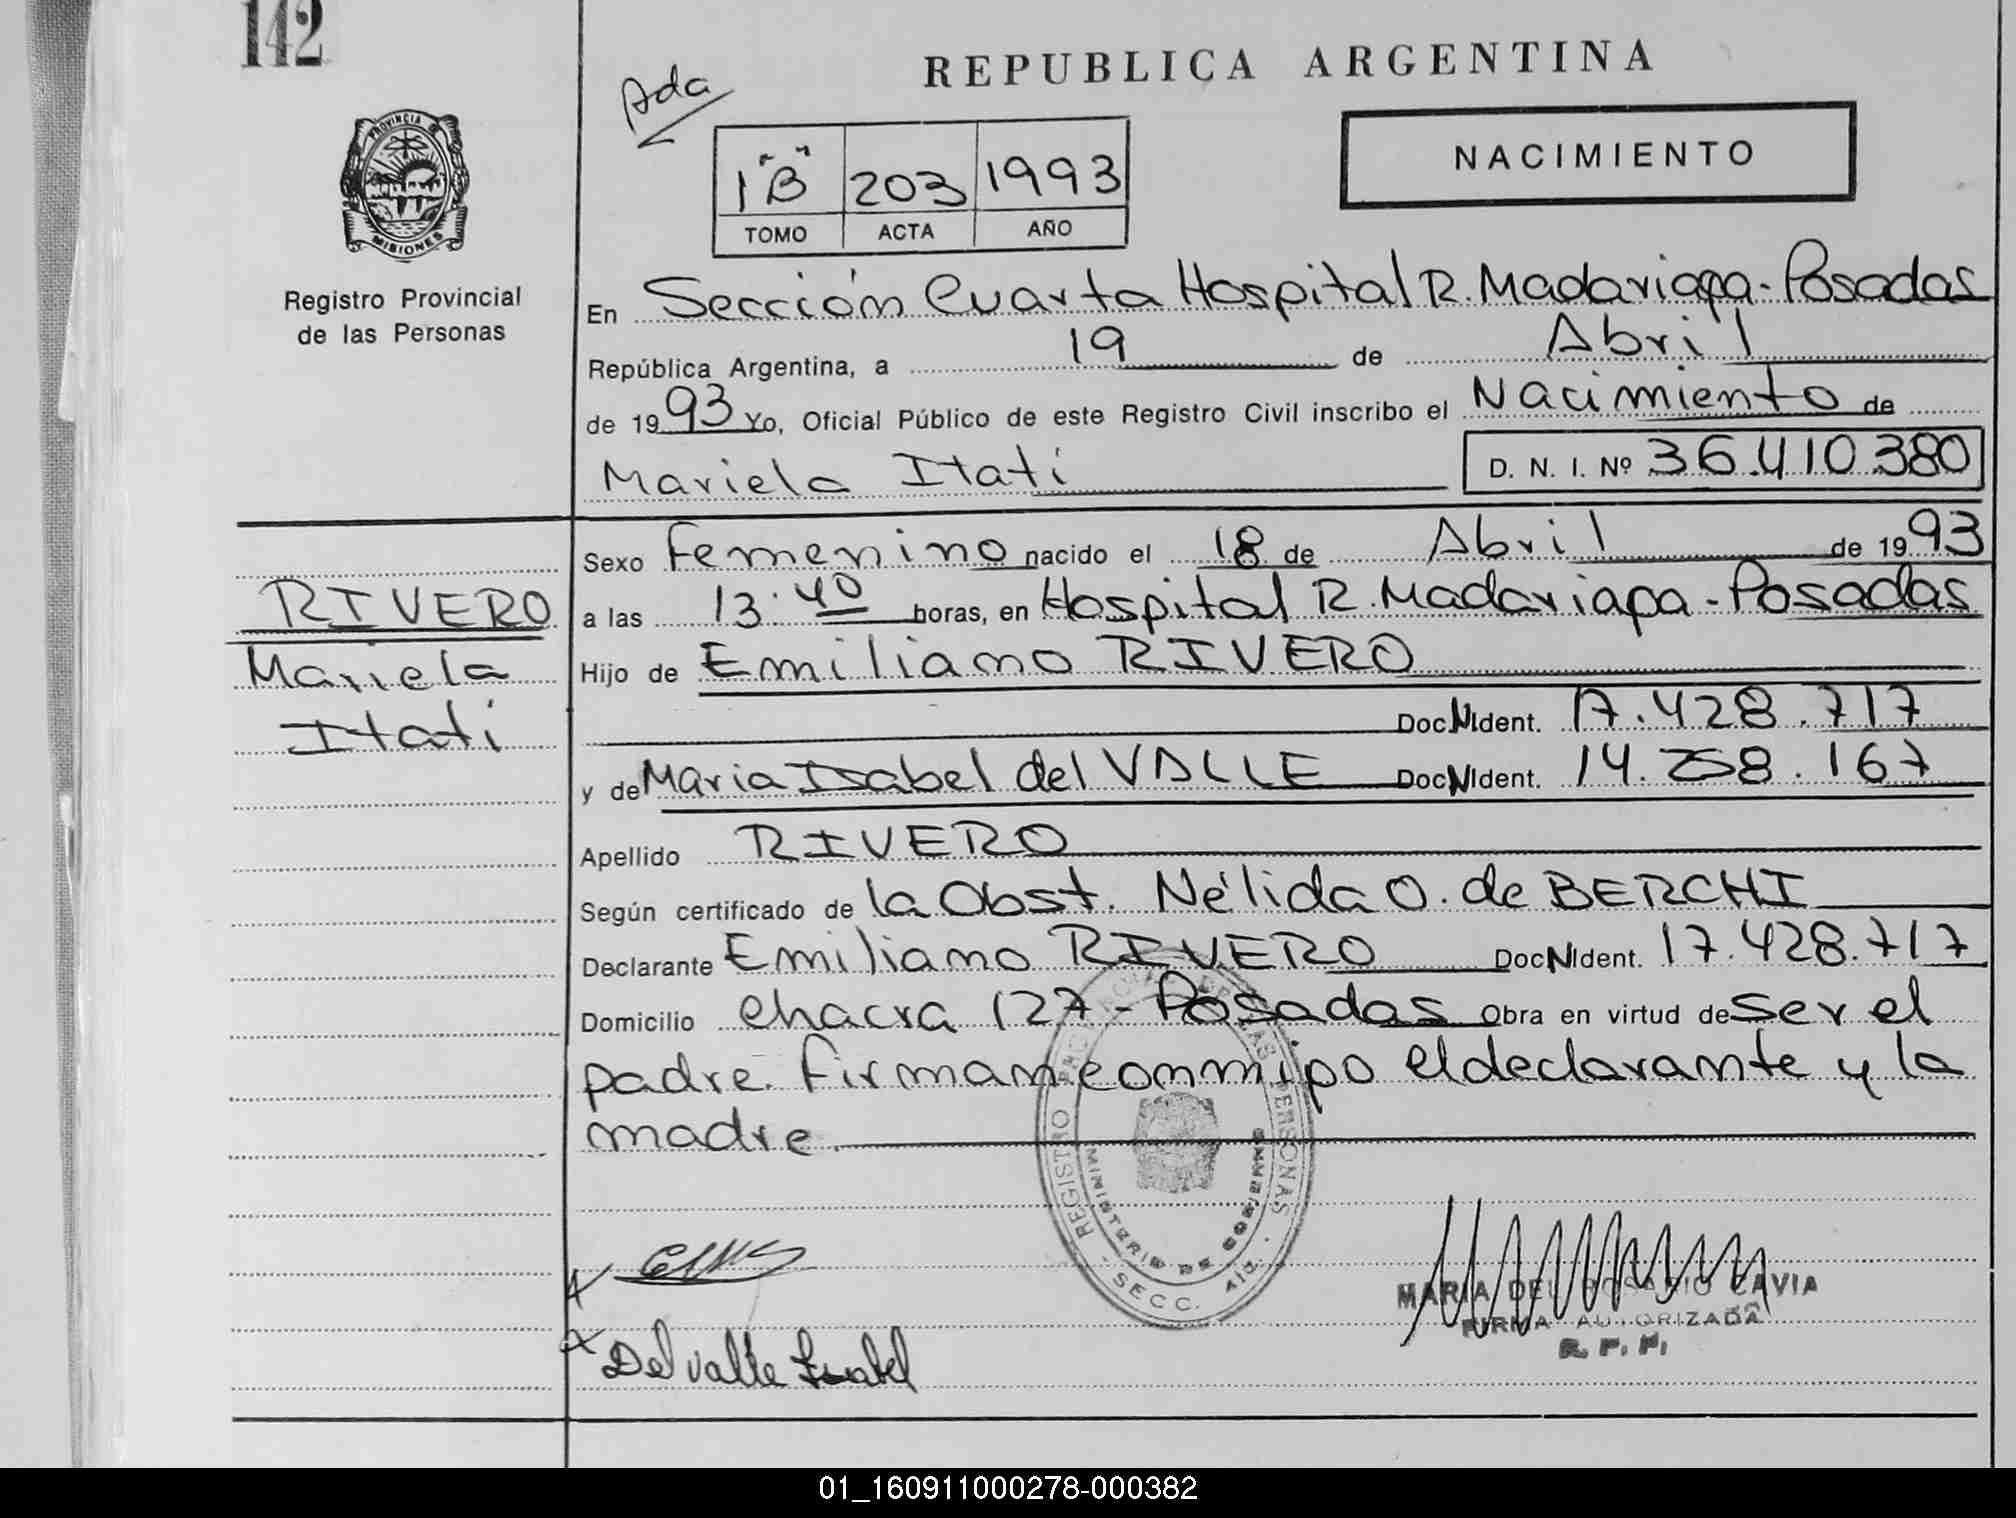 142
REPUBLICA ARGENTINA
Ada
NACIMIENTO
1 "B" 203 1993
TOMO ACTA AÑO
PROVINCIA DE
MISIONES
Registro Provincial
de las Personas
En Sección Cuarta Hospital R. Madariaga - Posadas
República Argentina, a 19 de Abril
de 1993 Yo, Oficial Público de este Registro Civil inscribo el Nacimiento de
Mariela Itati D. N. I. Nº 36.410.380
Sexo Femenino nacido el 18 de Abril de 1993
RIVERO
Mariela
Itati
a las 13:40 horas, en Hospital R. Madariaga - Posadas
Hijo de Emiliano RIVERO
Doc.N.Ident. 17.428.717
y de Maria Isabel del VALLE Doc.N.Ident. 14.258.167
Apellido RIVERO
Según certificado de la Obst. Nélida O. de BERCHI
Declarante Emiliano RIVERO Doc.N.Ident. 17.428.717
Domicilio chacra 127 - Posadas Obra en virtud de ser el
padre. Firman conmigo el declarante y la
madre.
REGISTRO PROVINCIAL DE LAS PERSONAS
MINISTERIO DE GOBIERNO
SECC. 4ta.
MARIA DEL ROSARIO CAVIA
FIRMA AUTORIZADA
R. P. P.
Del valle Isabel
01_160911000278-000382